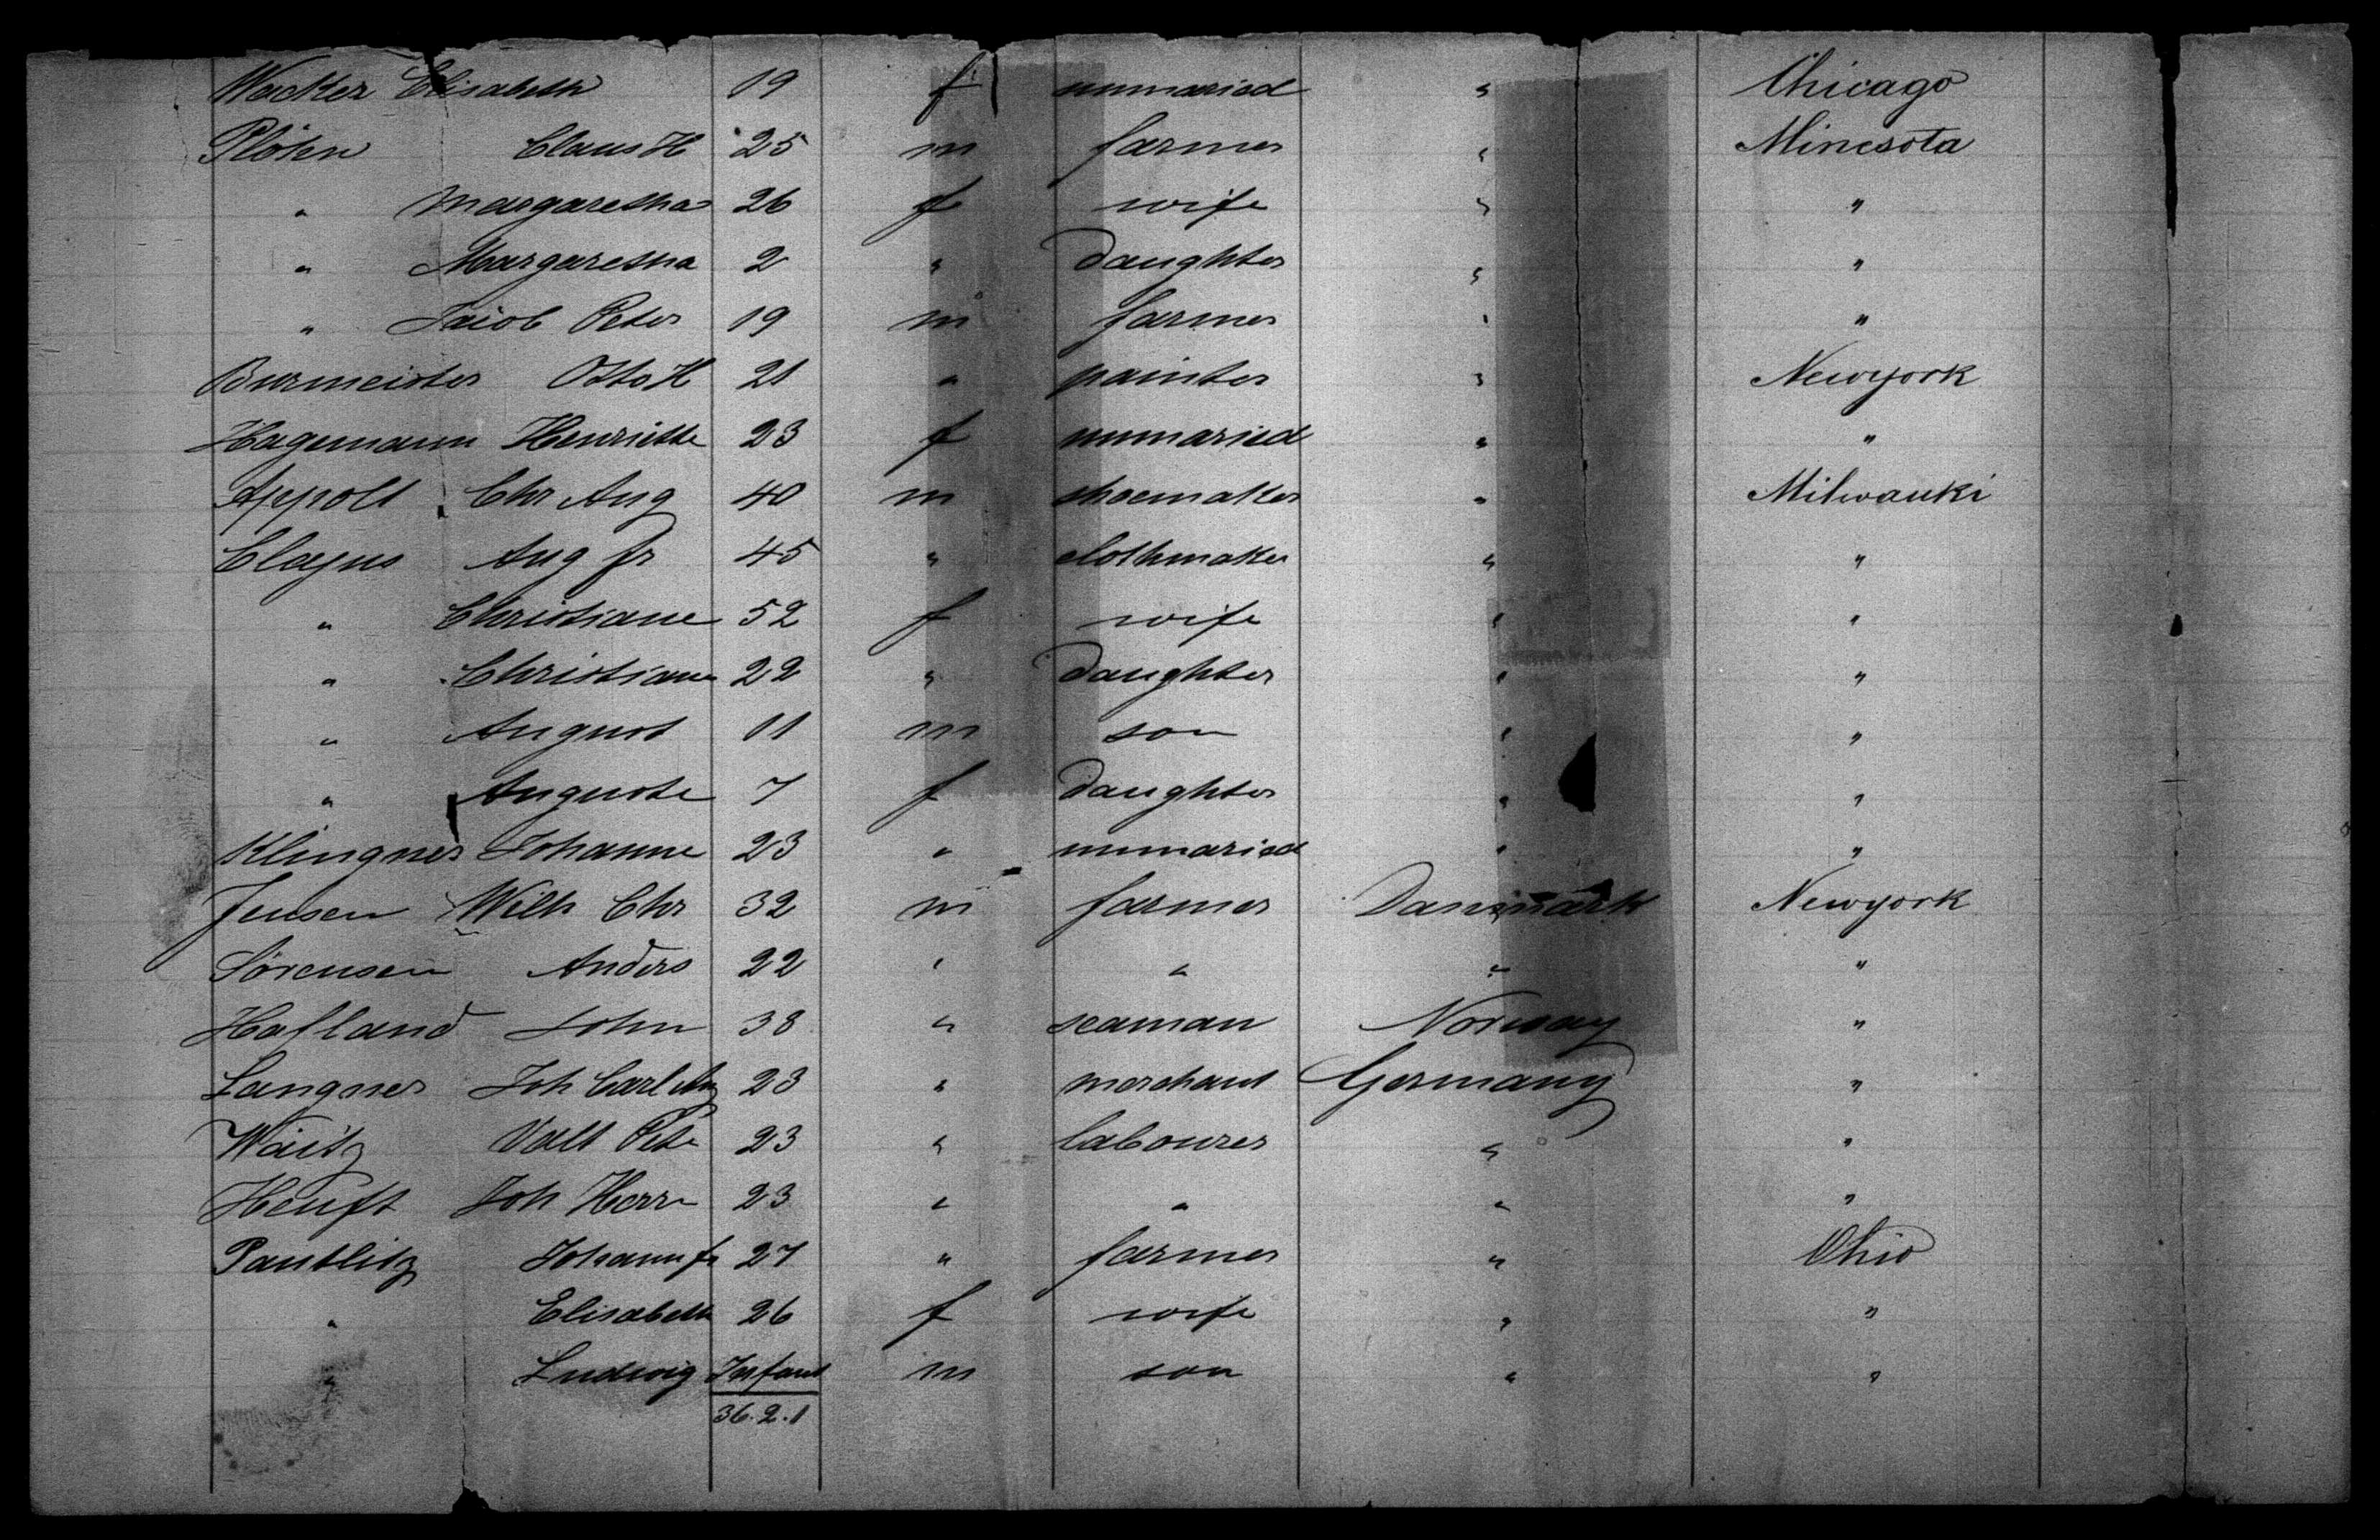 Wacker Elisabeth 19 f unmaried " Chicago
Plöhn Claus H 25 m farmer " Minesota
" Margaretha 26 f wife " "
" Margaretha 2 " daughter " "
" Jacob Peter 19 m farmer " "
Burmeister Otto H 21 " painter " Newyork
Hagemann Henriette 23 f unmaried " "
Appolt Chr Aug 40 m shoemaker " Milwauki
Clajus Aug fr 45 " clothmaker " "
" Christiane 52 f wife " "
" Christiane 22 " daughter " "
" August 11 m son " "
" Auguste 7 f daughter " "
Klingner Johanne 23 " unmaried " "
Jensen Wilh Chr 32 m farmer Danimark Newyork
Sörensen Anders 22 " " " "
Hafland John 38 " seaman Norway "
Langner Joh Carl Aug 23 " merchant Germany "
Waitz Valt 23 " labourer " "
Heuft Joh Herm 23 " " " "
Pautlitz Johann fr 27 " farmer " Ohio
" Elisabeth 26 f wife " "
" Ludwig Infant m son " "
36.2.1